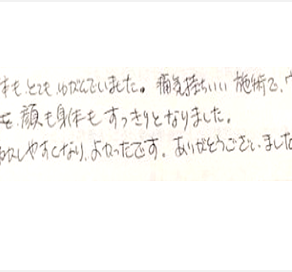 体も、とてもゆがんでいました。痛気持ちいい施術で、
を、顔も身体もすっきりとなりました。
しやすくなり、よかったです。ありがとうございました